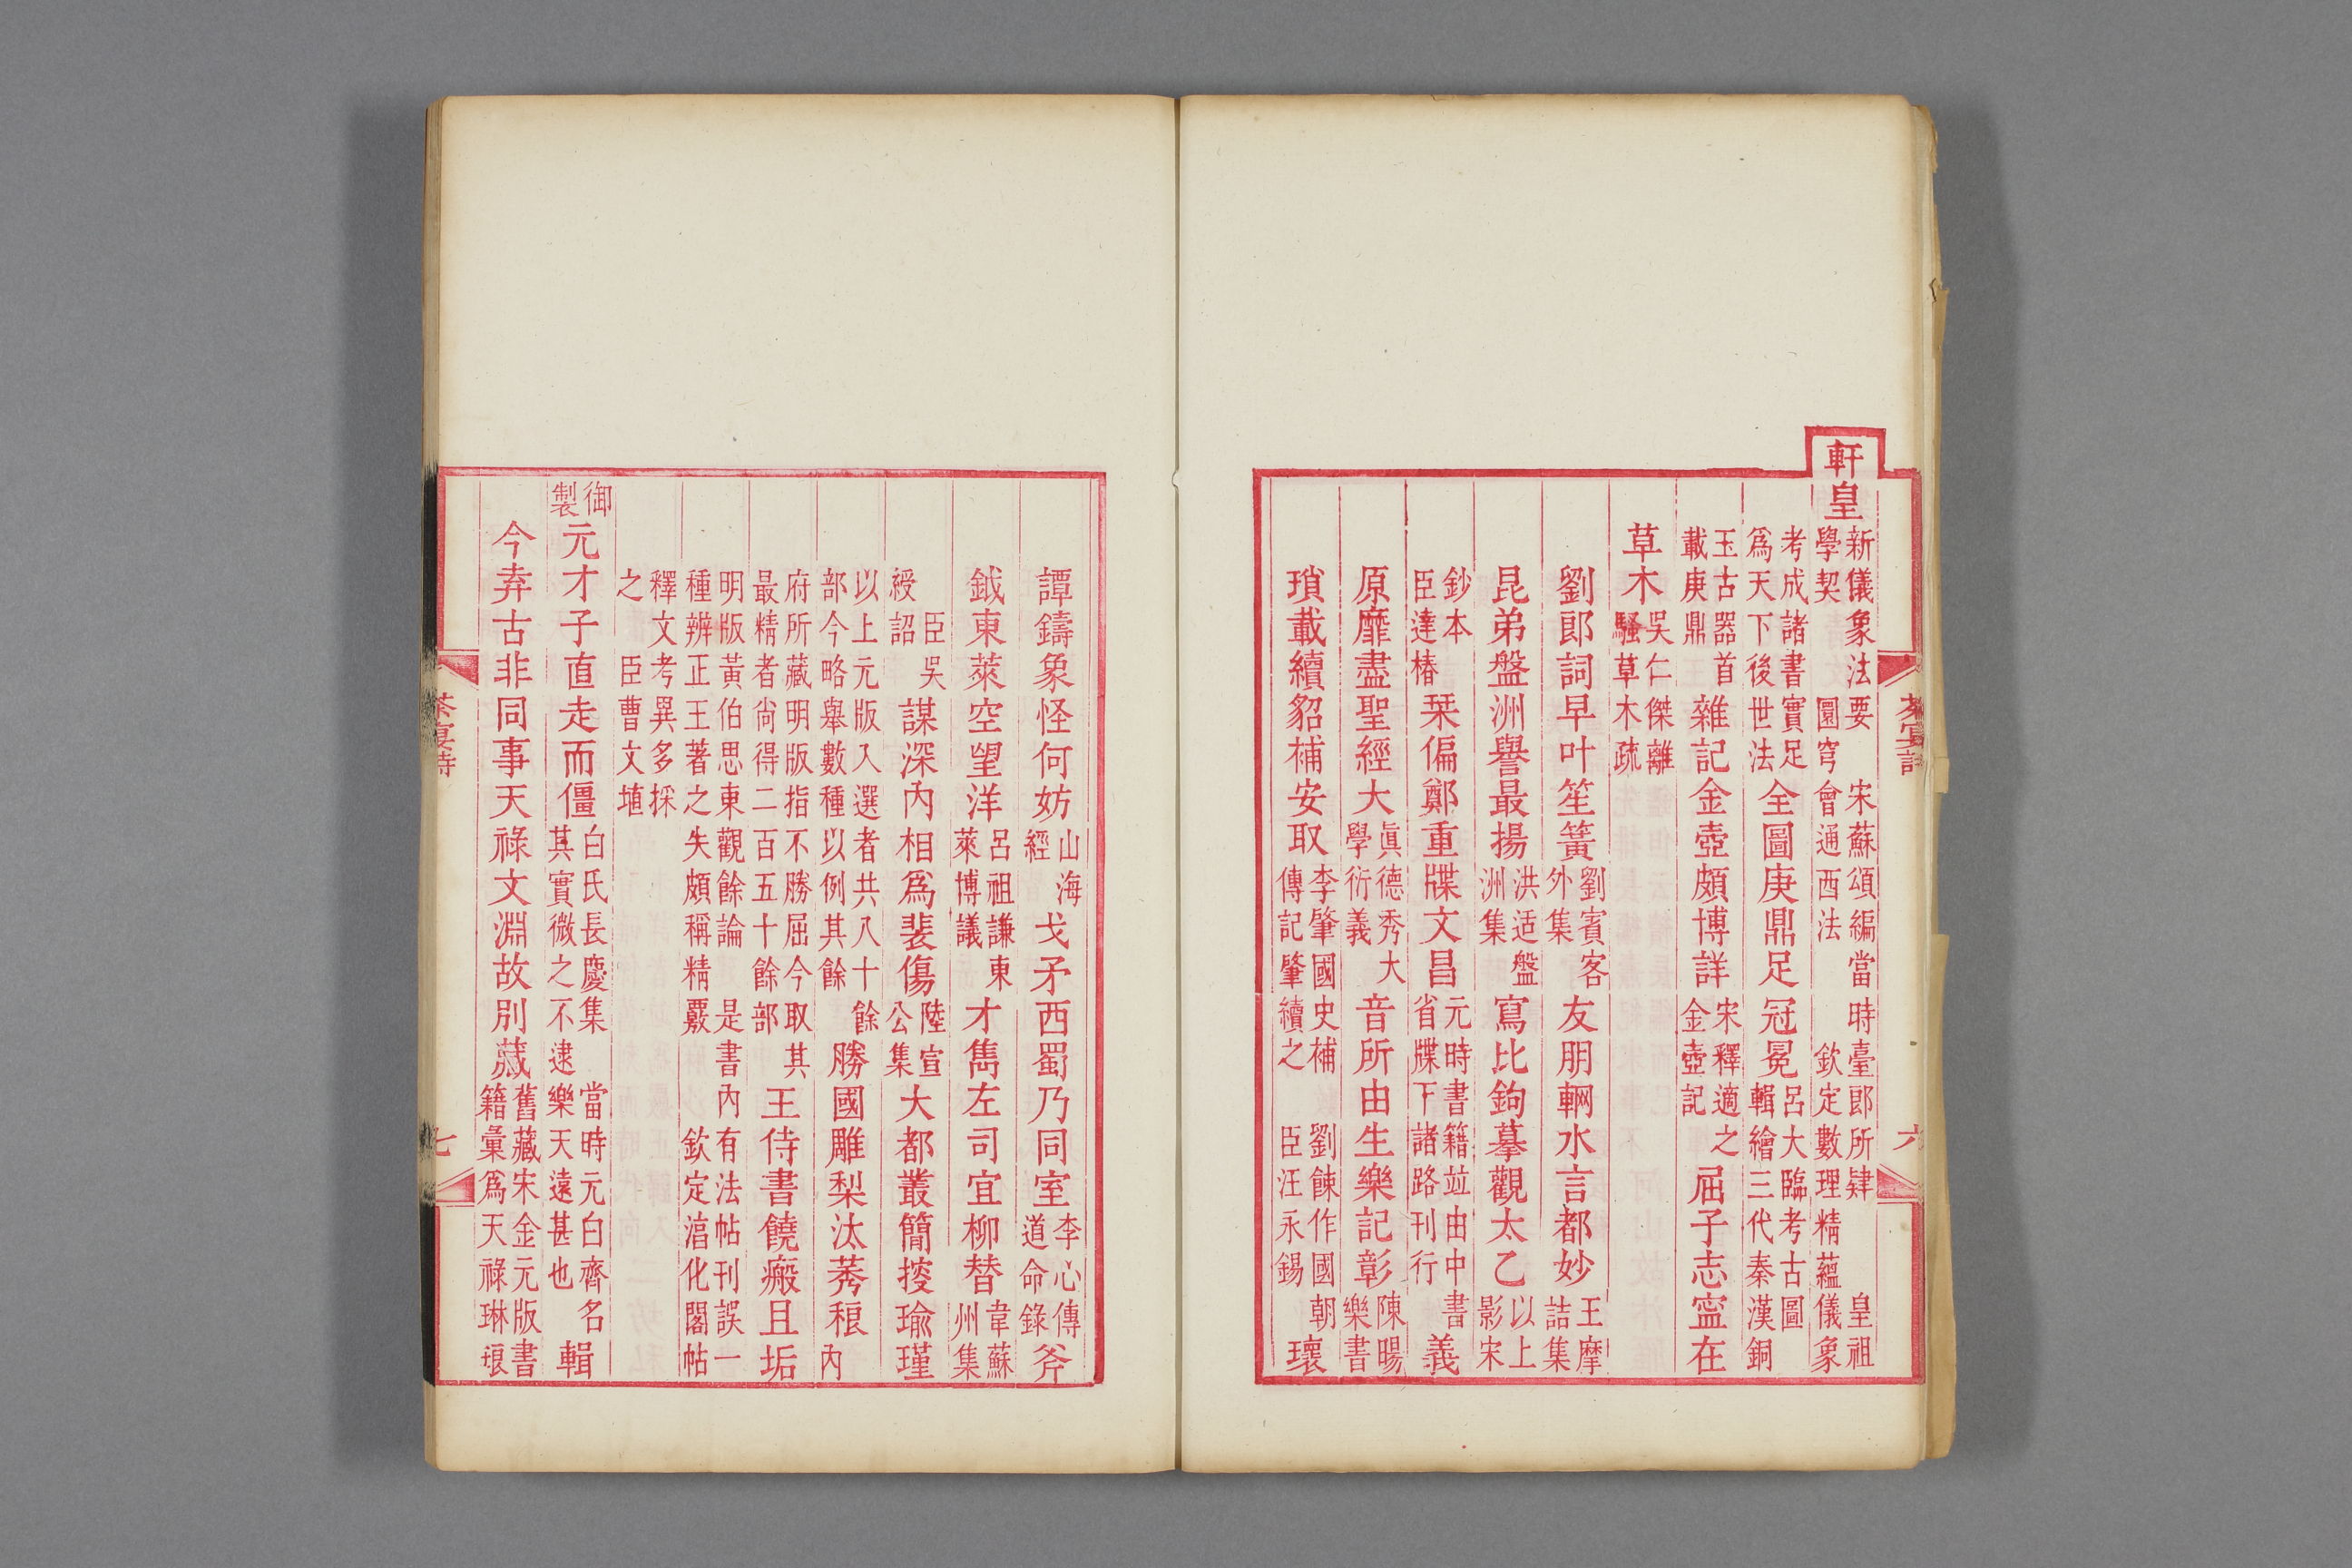 軒皇新儀象法要 宋蘇頌編當時臺郎所肄 皇祖學契 圜穹會通西法 欽定數理精蘊儀象
考成諸書實足為天下後世法全圖庚鼎足冠冕呂大臨考古圖輯繪三代秦漢銅
玉古器首載庚鼎雜記金壺頗博詳宋釋適之金壺記屈子志寍在
草木吳仁傑離騷草木疏
劉郎詞早叶笙簧劉賓客外集友朋輞水言都妙王摩詰集
昆弟盤洲譽最揚洪适盤洲集寫比鉤摹觀太乙以上影宋
鈔本 臣達椿栞偏鄭重牒文昌元時書籍竝由中書省牒下諸路刊行義
原靡盡聖經大眞德秀大學衍義音所由生樂記彰陳暘樂書
瑣載續貂補安取李肇國史補 劉餗作國朝傳記肇續之 臣汪永錫瓌
茶宴詩 六
譚鑄象怪何妨山海經戈矛西蜀乃同室李心傳道命錄斧
鉞東萊空望洋呂祖謙東萊博議才雋左司宜柳替韋蘇州集
臣吳綬詔謀深內相為裴傷陸宣公集大都叢簡瑜瑾
以上元版入選者共八十餘部今略舉數種以例其餘勝國雕梨汰莠稂內
府所藏明版指不勝屈今取其最精者尙得二百五十餘部王侍書饒瘢且垢
明版黃伯思東觀餘論 是書內有法帖刊誤一種辨正王著之失頗稱精覈 欽定淳化閣帖
釋文考異多採之 臣曹文埴
御製元才子直走而僵白氏長慶集 當時元白齊名其實微之不逮樂天遠甚也輯
今弆古非同事天祿文淵故別藏舊藏宋金元版書籍彙為天祿琳琅
茶宴詩 七